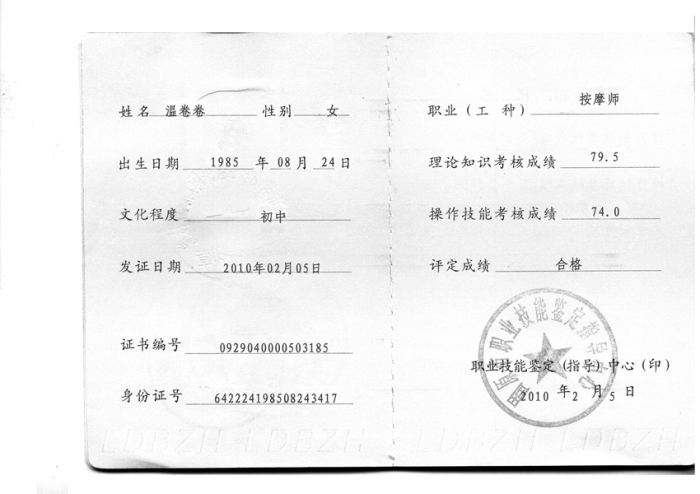 姓名 温卷卷 性别 女
出生日期 1985 年 08 月 24 日
文化程度 初中
发证日期 2010年02月05日
证书编号 0929040000503185
身份证号 642224198508243417
职业（工 种） 按摩师
理论知识考核成绩 79.5
操作技能考核成绩 74.0
评定成绩 合格
职业技能鉴定（指导）中心（印）
2010 年 2 月 5 日
职业技能鉴定指导中心
LDBZH LDBZH
LDBZH LDBZH